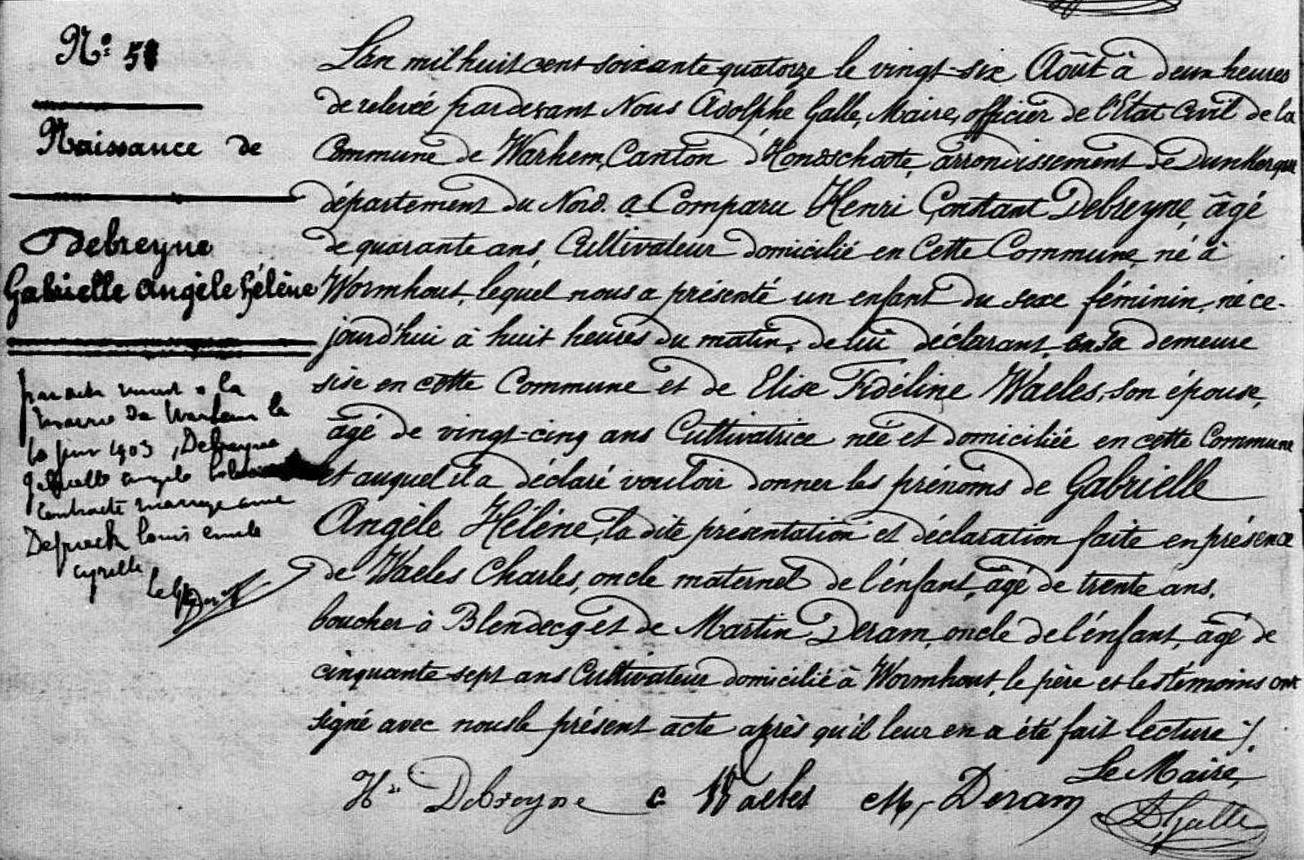 Nº 51
Naissance de
Debreyne
Gabrielle Angèle Hélène
par acte reçu à la
mairie de Warhem le
10 juin 1903, Debreyne
Gabrielle Angèle Hélène
contracté mariage avec
louis emile
cyrille
le
L'an mil huit cent soixante quatorze le vingt-six Août à deux heures
de relevée pardevant Nous Adolphe Galle, Maire, officier de l'Etat Civil de la
Commune de Warhem, Canton d'Hondschoote, arrondissement de Dunkerque
département du Nord. a Comparu Henri Constant Debreyne, âgé
de quarante ans, Cultivateur domicilié en Cette Commune, né à
Wormhout, lequel nous a présenté un enfant du sexe féminin, né ce-
jourd'hui à huit heures du matin, de lui déclarant, en sa demeure
sise en cette Commune et de Elise Fidéline Waeles, son épouse,
âgé de vingt-cinq ans Cultivatrice née et domiciliée en cette Commune
et auquel il a déclaré vouloir donner les prénoms de Gabrielle
Angèle Hélène, la dite présentation et déclaration faite en présence
de Waeles Charles, oncle maternel de l'énfant, âgé de trente ans,
boucher à Blendecq et de Martin Deram, oncle de l'énfant, âgé de
cinquante sept ans Cultivateur domicilié à Wormhout, le père et les témoins ont
signé avec nous le présent acte après qu'il leur en a été fait lecture ./
Le Maire,
Hri Debreyne C Waeles M, Deram
A Galle